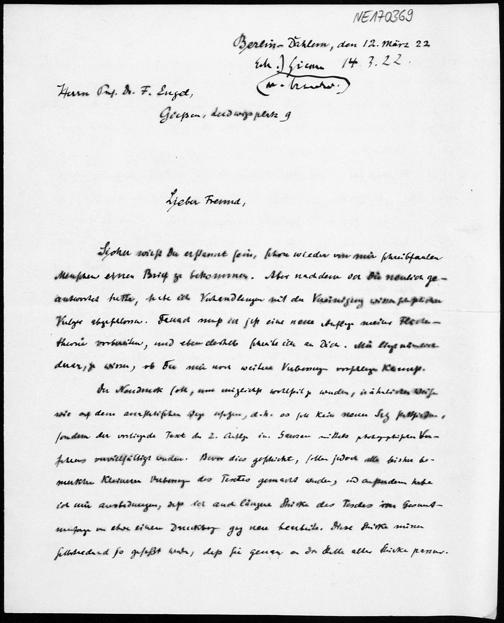 NE170369
Berlin-Dahlem, den 12. März 22
14.3.22.
Herrn Prof. Dr. F. Engel,
Gießen, Ludwigsplatz 9
Lieber Freund,
Sicher wirst Du erstaunt sein, schon wieder von mir schreibfaulen
Menschen einen Brief zu bekommen. Aber nachdem ich Dir neulich ge-
antwortet hatte, habe ich Verhandlungen mit der Vereinigung wissenschaftlicher
Verleger abgeschlossen. Danach muß ich jetzt eine neue Auflage meiner Flächen-
theorie vorbereiten, und eben deshalb schreibe ich an Dich. Mir liegt nämlich
daran, zu wissen, ob Du mir noch weitere Verbesserungen vorschlagen kannst.
Der Neudruck soll, um möglichst wohlfeil zu werden, in ähnlicher Weise
wie auf dem anastatischen Wege erfolgen, d.h. es soll kein neuer Satz stattfinden,
sondern der vorliegende Text der 2. Auflage im Ganzen mittels photographischen Ver-
fahrens vervielfältigt werden. Bevor dies geschieht, sollen jedoch alle bisher be-
merkten kleineren Verbesserungen des Textes gemacht werden, und außerdem habe
ich mir ausbedungen, daß ich auch längere Stücke des Textes vom Gesamt-
umfange von etwa einem Druckbogen ganz neu bearbeite. Diese Stücke müssen
selbstredend so gefaßt werden, daß sie genau an die Stelle alter Stücke passen.